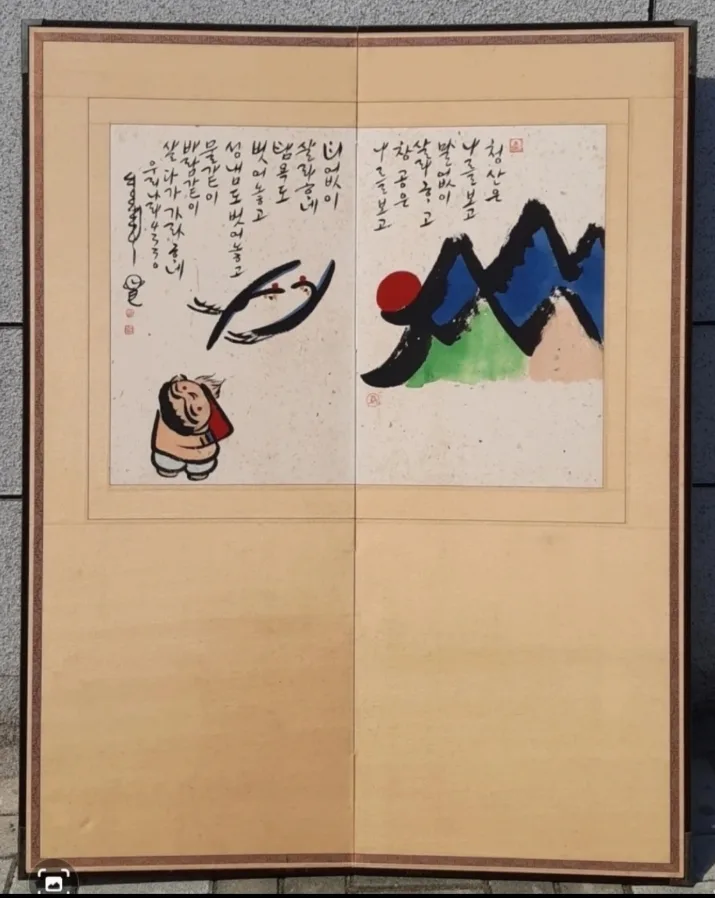 청산은
나를보고
말없이
살라하고
창공은
나를보고
티없이
살라하네
탐욕도
벗어놓고
성냄도벗어놓고
물같이
바람같이
살다가가라하네
우리나라4330